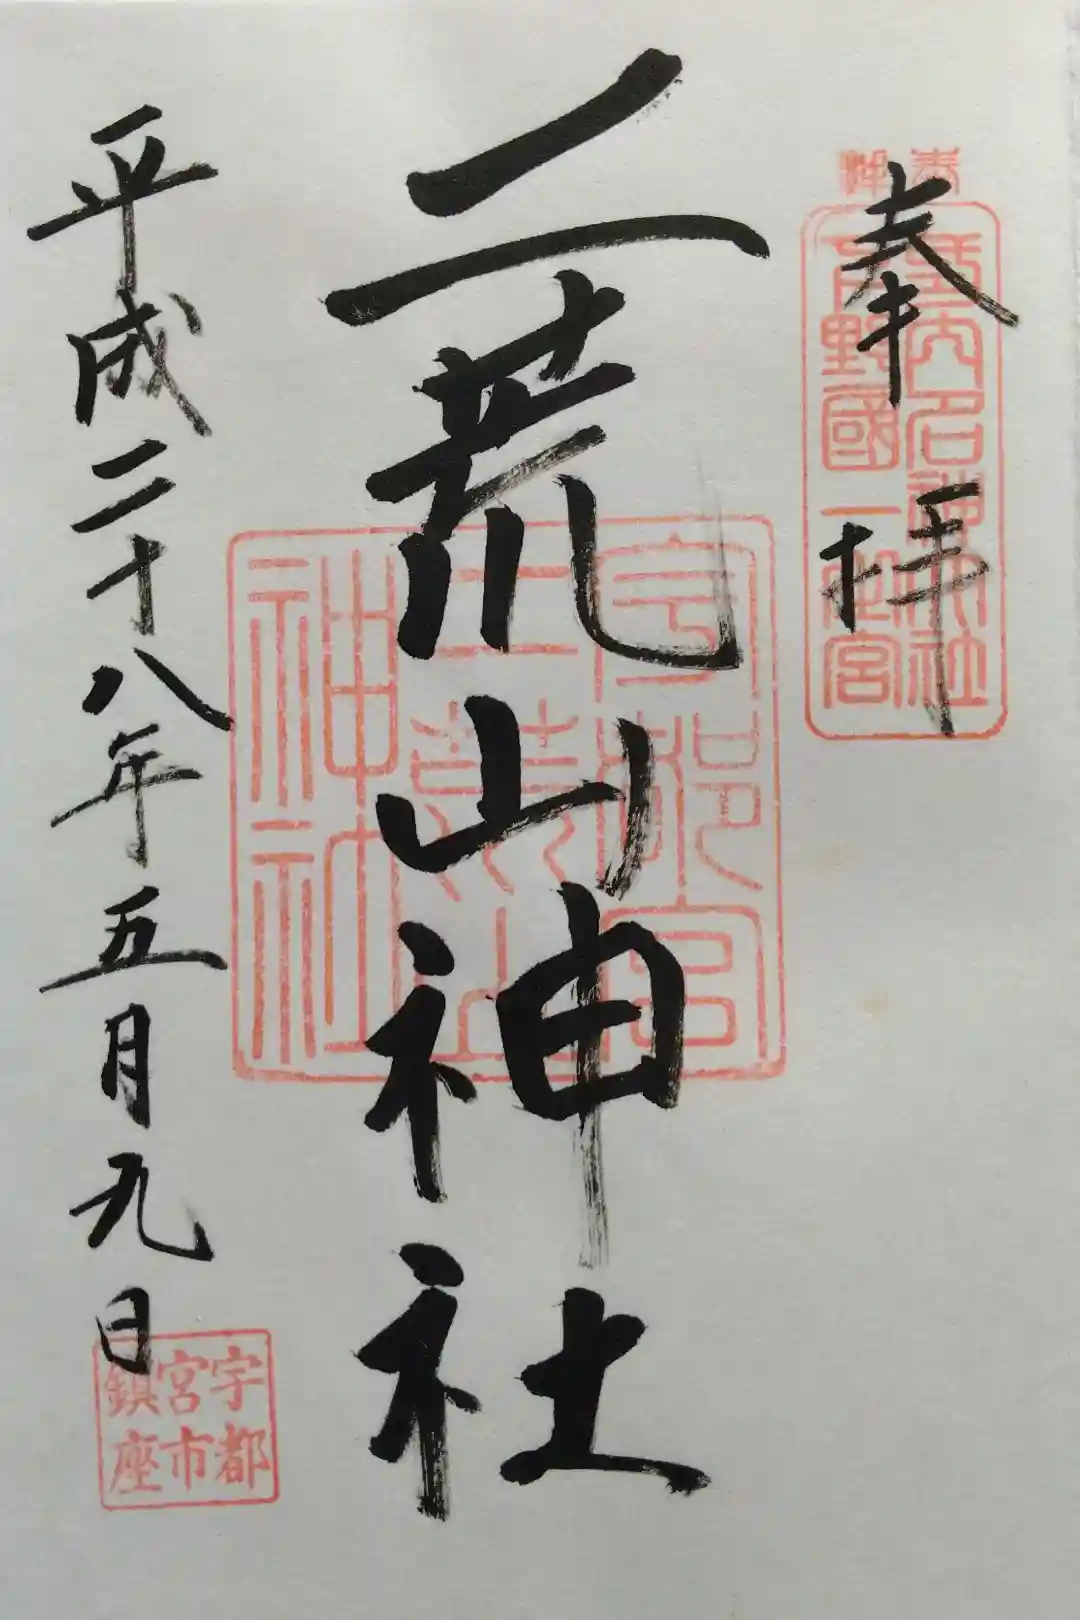 奉拝
延喜式内名神大社
下野國一之宮
二荒山神社
宇都宮
二荒山
神社
平成二十八年五月九日
宇都
宮市
鎮座